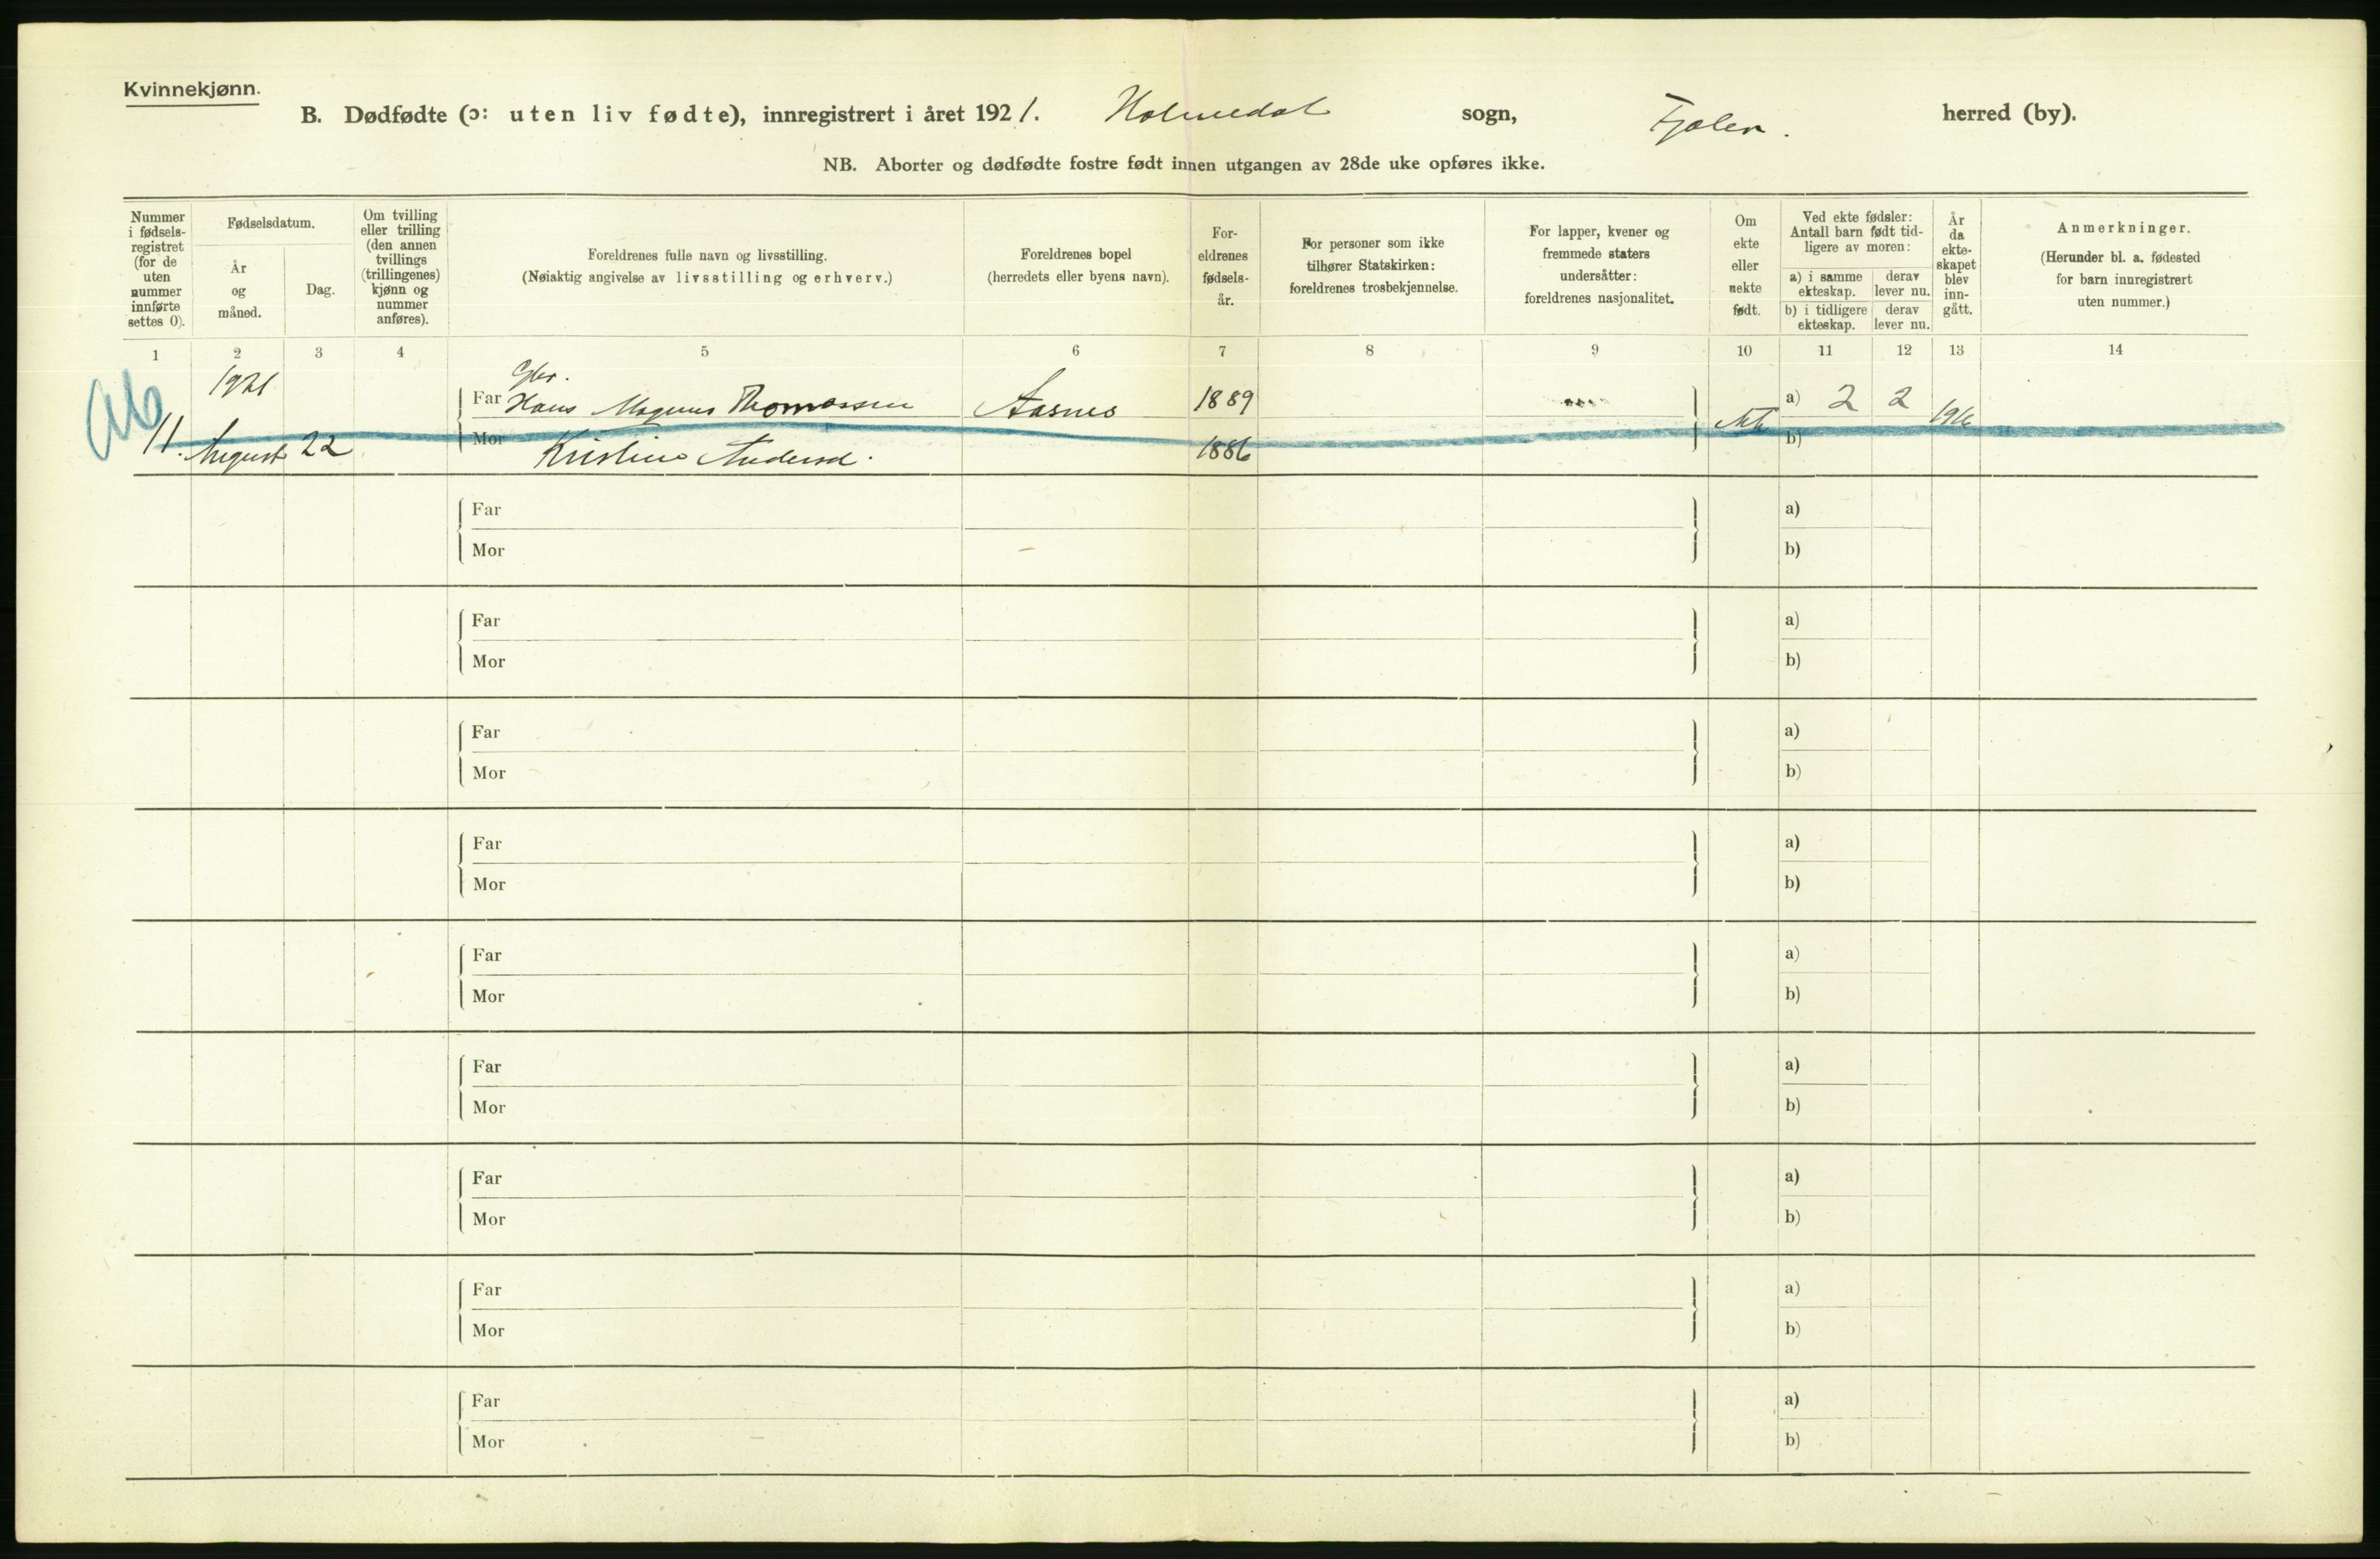 Kvinnekjønn.
B. Dødfødte (ɔ: uten liv fødte), innregistrert i året 1921. Holmedal sogn, Fjaler. herred (by).
NB. Aborter og dødfødte fostre født innen utgangen av 28de uke opføres ikke.
Nummer
i fødsels-
registret
(for de
uten
nummer
innførte
settes 0).
Fødselsdatum.
År
og
måned.
Dag.
Om tvilling
eller trilling
(den annen
tvillings
(trillingenes)
kjønn og
nummer
anføres).
Foreldrenes fulle navn og livsstilling.
(Nøiaktig angivelse av livsstilling og erhverv.)
Foreldrenes bopel
(herredets eller byens navn).
For-
eldrenes
fødsels-
år.
For personer som ikke
tilhører Statskirken:
foreldrenes trosbekjennelse.
For lapper, kvener og
fremmede staters
undersåtter:
foreldrenes nasjonalitet.
Om
ekte
eller
uekte
født.
Ved ekte fødsler:
Antall barn født tid-
ligere av moren:
a) i samme
ekteskap.
derav
lever nu.
b) i tidligere
ekteskap.
derav
lever nu.
År
da
ekte-
skapet
blev
inn-
gått.
Anmerkninger.
(Herunder bl. a. fødested
for barn innregistrert
uten nummer.)
1 2 3 4 5 6 7 8 9 10 11 12 13 14
1921 Gbr.
Far Hans Magnus Thomassen Aasnes 1889 a) 2 2 1916
11. August 22 Mor Kristine Andersd. 1886 b)
Far a)
Mor b)
Far a)
Mor b)
Far a)
Mor b)
Far a)
Mor b)
Far a)
Mor b)
Far a)
Mor b)
Far a)
Mor b)
Far a)
Mor b)
Far a)
Mor b)